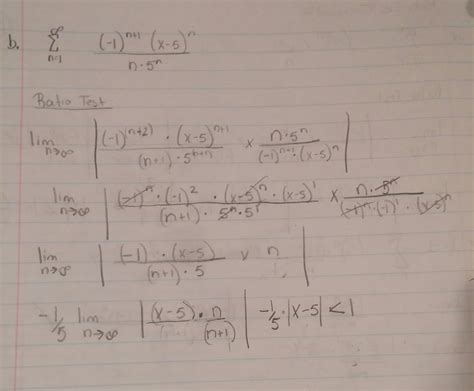 b. ∞ Σ n=1 (-1)^(n+1) (x-5)^n / n · 5^n
Ratio Test
lim n→∞ | (-1)^(n+2) · (x-5)^(n+1) / (n+1) · 5^(n+1) × n · 5^n / (-1)^(n+1) · (x-5)^n |
lim n→∞ | (-1)^n · (-1)^2 · (x-5)^n · (x-5)^1 / (n+1) · 5^n · 5^1 × n · 5^n / (-1)^n · (-1)^1 · (x-5)^n |
lim n→∞ | (-1) · (x-5) / (n+1) · 5 × n / 1 |
-1/5 lim n→∞ | (x-5) · n / (n+1) | -1/5 · |x-5| < 1